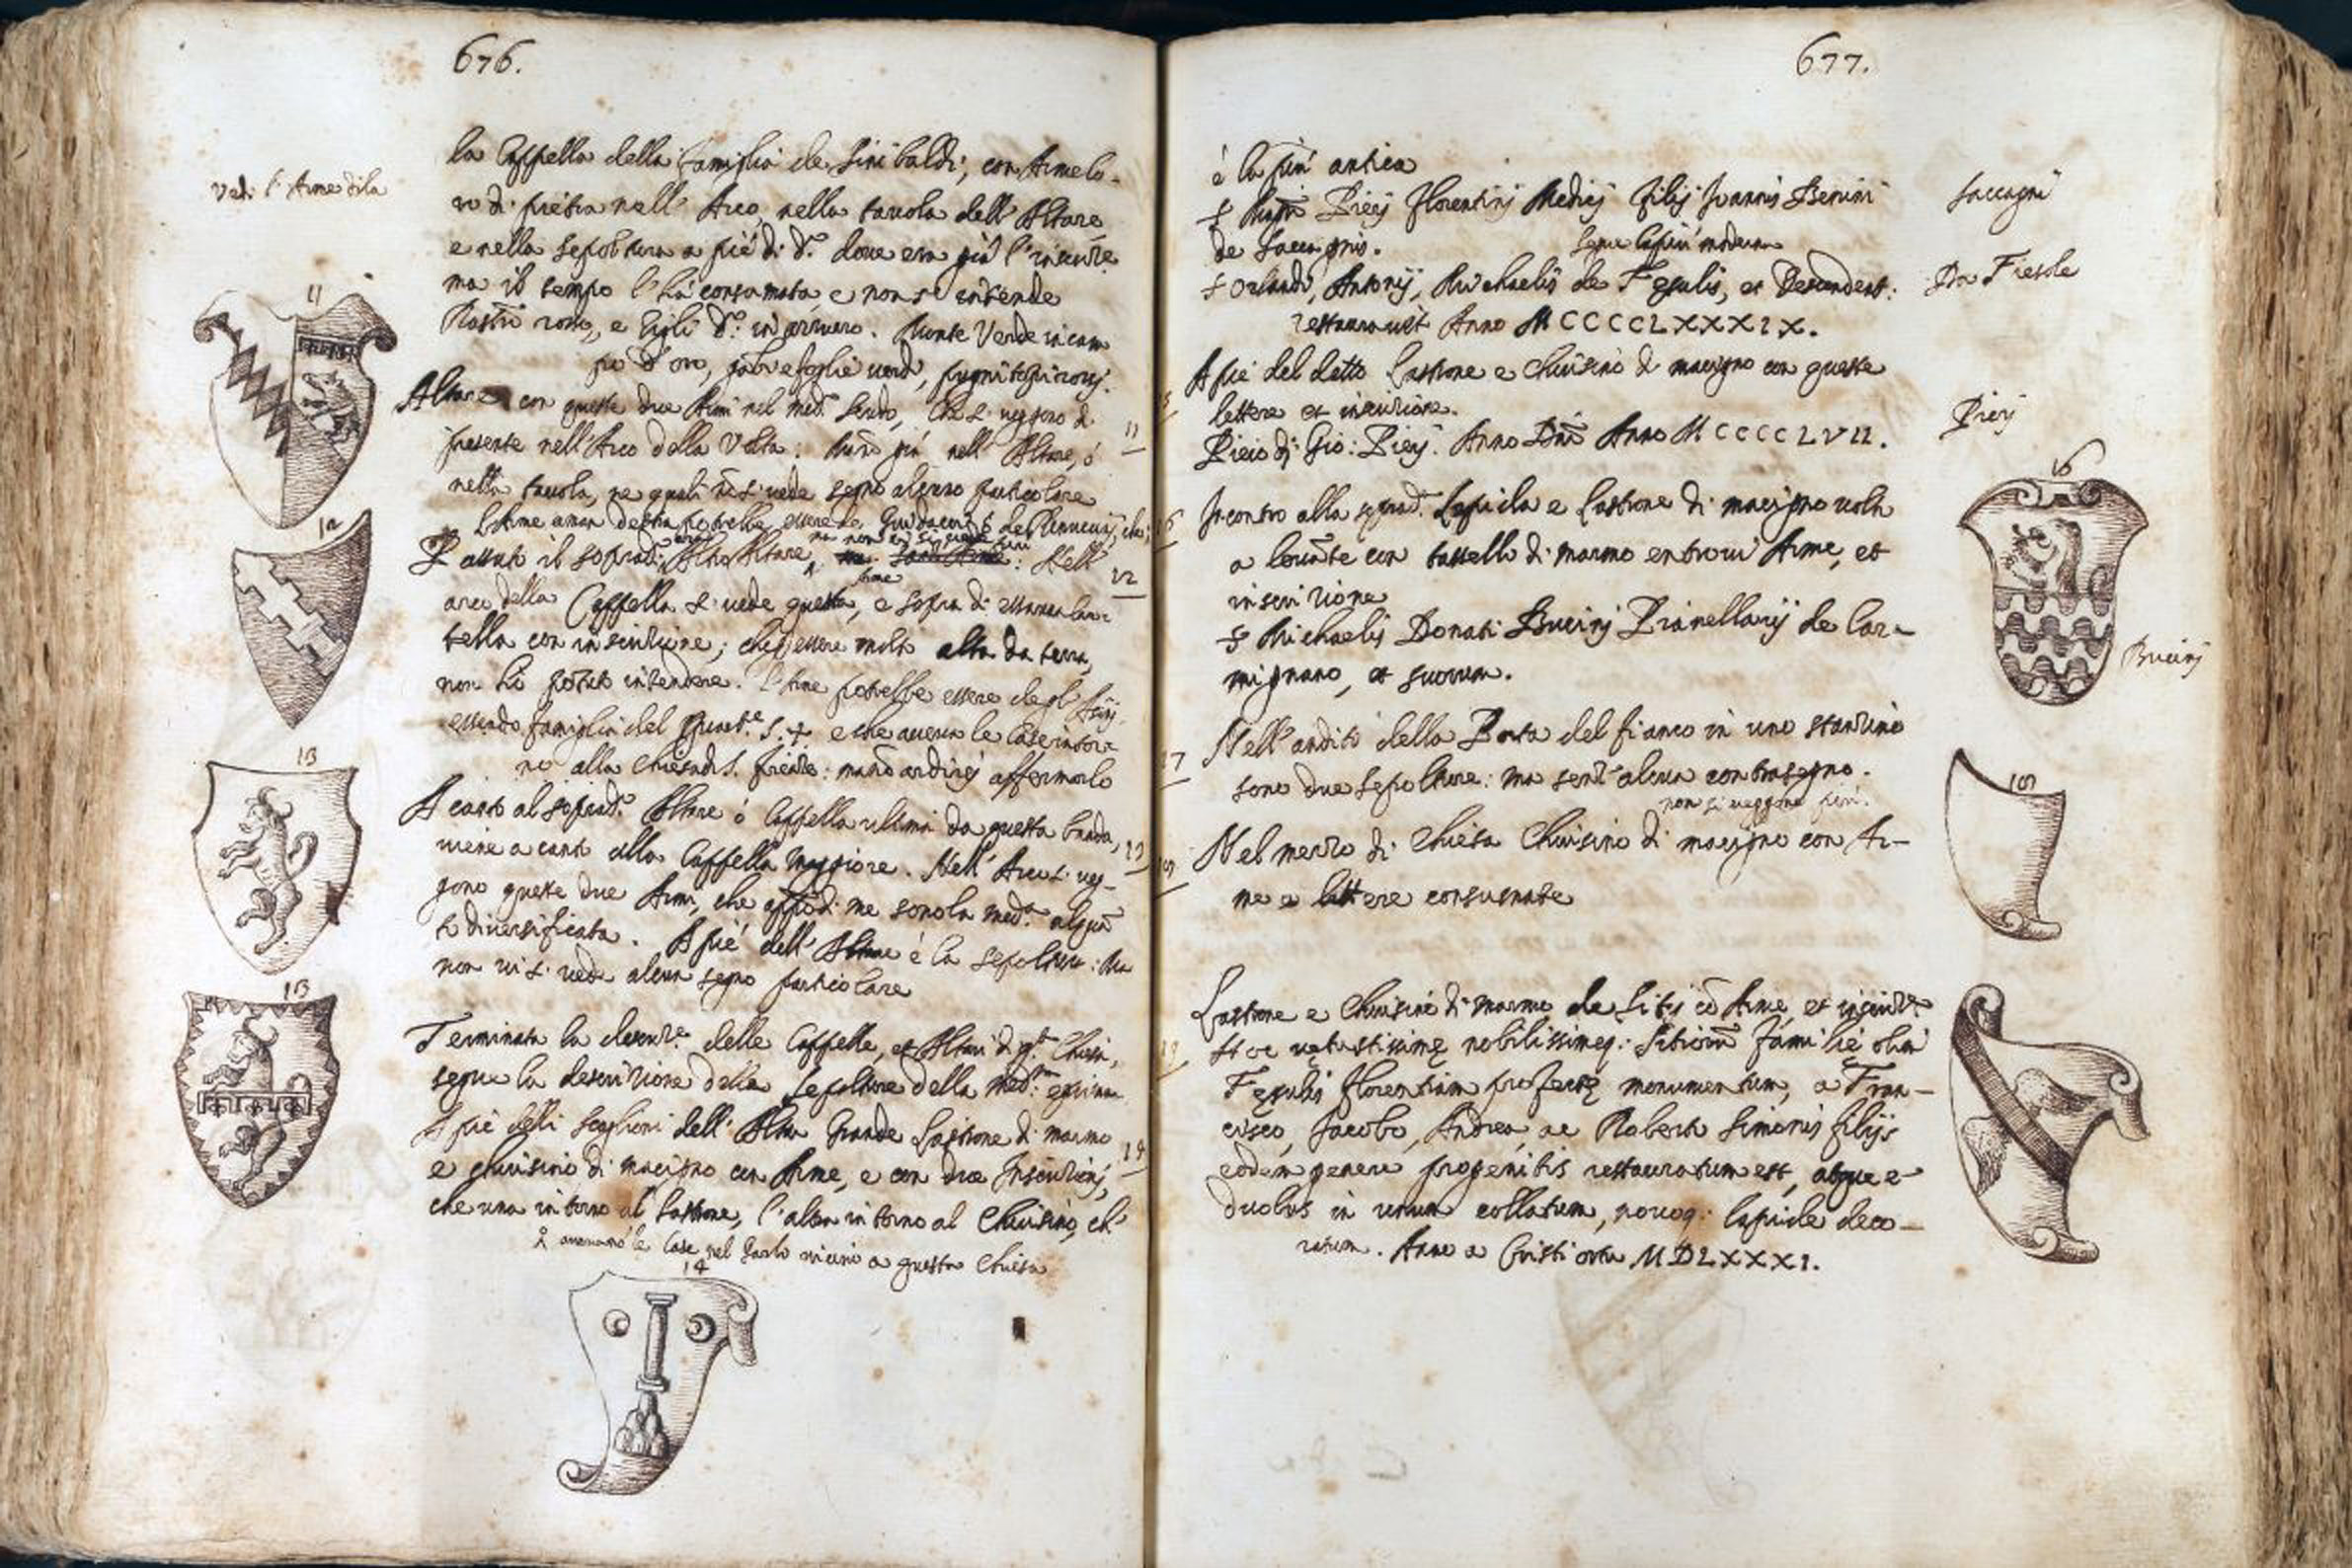 676.
Vedi l'Arme di la
la Cappella della famiglia de Sinibaldi, con Arme lo-
ro di pietra nell' Arco, nella tavola dell' Altare
e nella sepoltura a piè di d.º dove era già l'inscriz.e
ma il tempo l'hà consumata e non s' intende
Rastri rossi, e Gigli d.º in azzurro. Monte Verde in cam
po d'oro, foglie verdi,
Altare con queste due Armi nel med.º scudo, che si veggono di
presente nell' Arco della Volta: già nell' Altare, ò
nella tavola, ne quali nō si vede segno alcuno particolare
11
L'Arme a man destra potrebbe essere de Guidacci, ò de Vennucci, che
Accanto il soprad.º altro Altare, : Nell'
12
arco della Cappella si vede questa Arme, e sopra di essa una car-
tella con inscrizione; che p essere molto alta da terra,
non hò potuto intendere. l'Arme potrebbe essere degl' Asini,
essendo famiglia del Quart.e S. + e che aveva le Case intor-
no alla Chiesa di S. : affermarlo
Acanto al soprad.º Altare ò Cappella ultima da questa banda,
viene acanto alla Cappella Maggiore. Nell' Arco si veg-
13
gono queste due Armi, che app.º di me sono la med.ª alquā
to diversificata. A piè dell' Altare è la sepoltura: Ma
non vi si vede alcun segno particolare
Terminata la descriz.e delle Cappelle, et Altari di q.ta Chiesa,
segue la descrizione delle Sepolture della med.ma e prima
A piè delli scaglioni dell' Altar Grande Lastrone di marmo
14
e chiusino di macigno con Arme, e con due Inscrizioni,
che una intorno al Lastrone, l'altra intorno al Chiusino, ch'
avevano le Case nel vicino a questa Chiesa
11
12
13
13
14
677.
è la più antica
S. Mag.ri Pierj Florentinj Medicj filij Joannis Benini
Saccagni
de Saccagnis.
segue la più moderna
S Orlandi, Antonij, Michaelis de Fesulis, et Descendent:
Da Fiesole
restauravit Anno MCCCCLXXXIX.
A piè del detto Lastrone e Chiusino di macigno con queste
lettere et inscrizione.
Pierj
Piero di Gio: Pierj. Anno Dnī Anno MCCCCLVII.
16
Incontro alla soprad.ª Lapida e Lastrone di macigno volto
a levāte con tassello di marmo entrovi Arme, et
inscrizione
S Michaelis Donati Bucinj Pianellarij de Car-
mignano, et suorum.
Bucinj
17
Nell' andito della Porta del fianco in uno stanzino
sono due sepolture: ma senz' alcun contrasegno.
non si veggono più.
Nel mezzo di Chiesa Chiusino di macigno con Ar-
me e lettere consumate
Lastrone e Chiusino di marmo de Litij cō Arme, et inscriz.e
Hoc vetustissimę nobilissimęq: familię olim
Fęsulis Florentiam profectę monumentum, a Fran-
cisco, Jacobo, Andrea, ac Roberto Simonis filijs
eodem genere progenitis restauratum est, atque e
duobus in unum collatum, novoq: lapide deco-
ratum. Anno a Cristi ortu MDLXXXI.
16